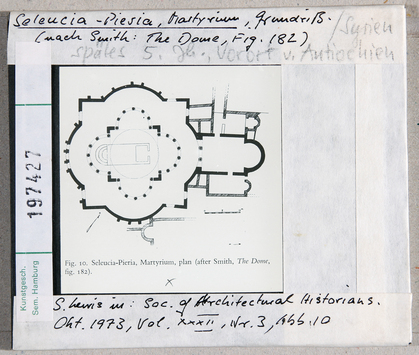 Seleucia-Piesia, Martyrium, Grundriß.
(nach Smith: The Dome, Fig. 182)
/Syrien
spätes 5. Jh., Vorort v. Antiochien
197427
Kunstgesch.
Sem. Hamburg
Fig. 10. Seleucia-Pieria, Martyrium, plan (after Smith, The Dome,
fig. 182).
x
S. Lewis in: Soc. of Architectural Historians.
Okt. 1973, Vol. XXXII, Nr. 3, Abb. 10